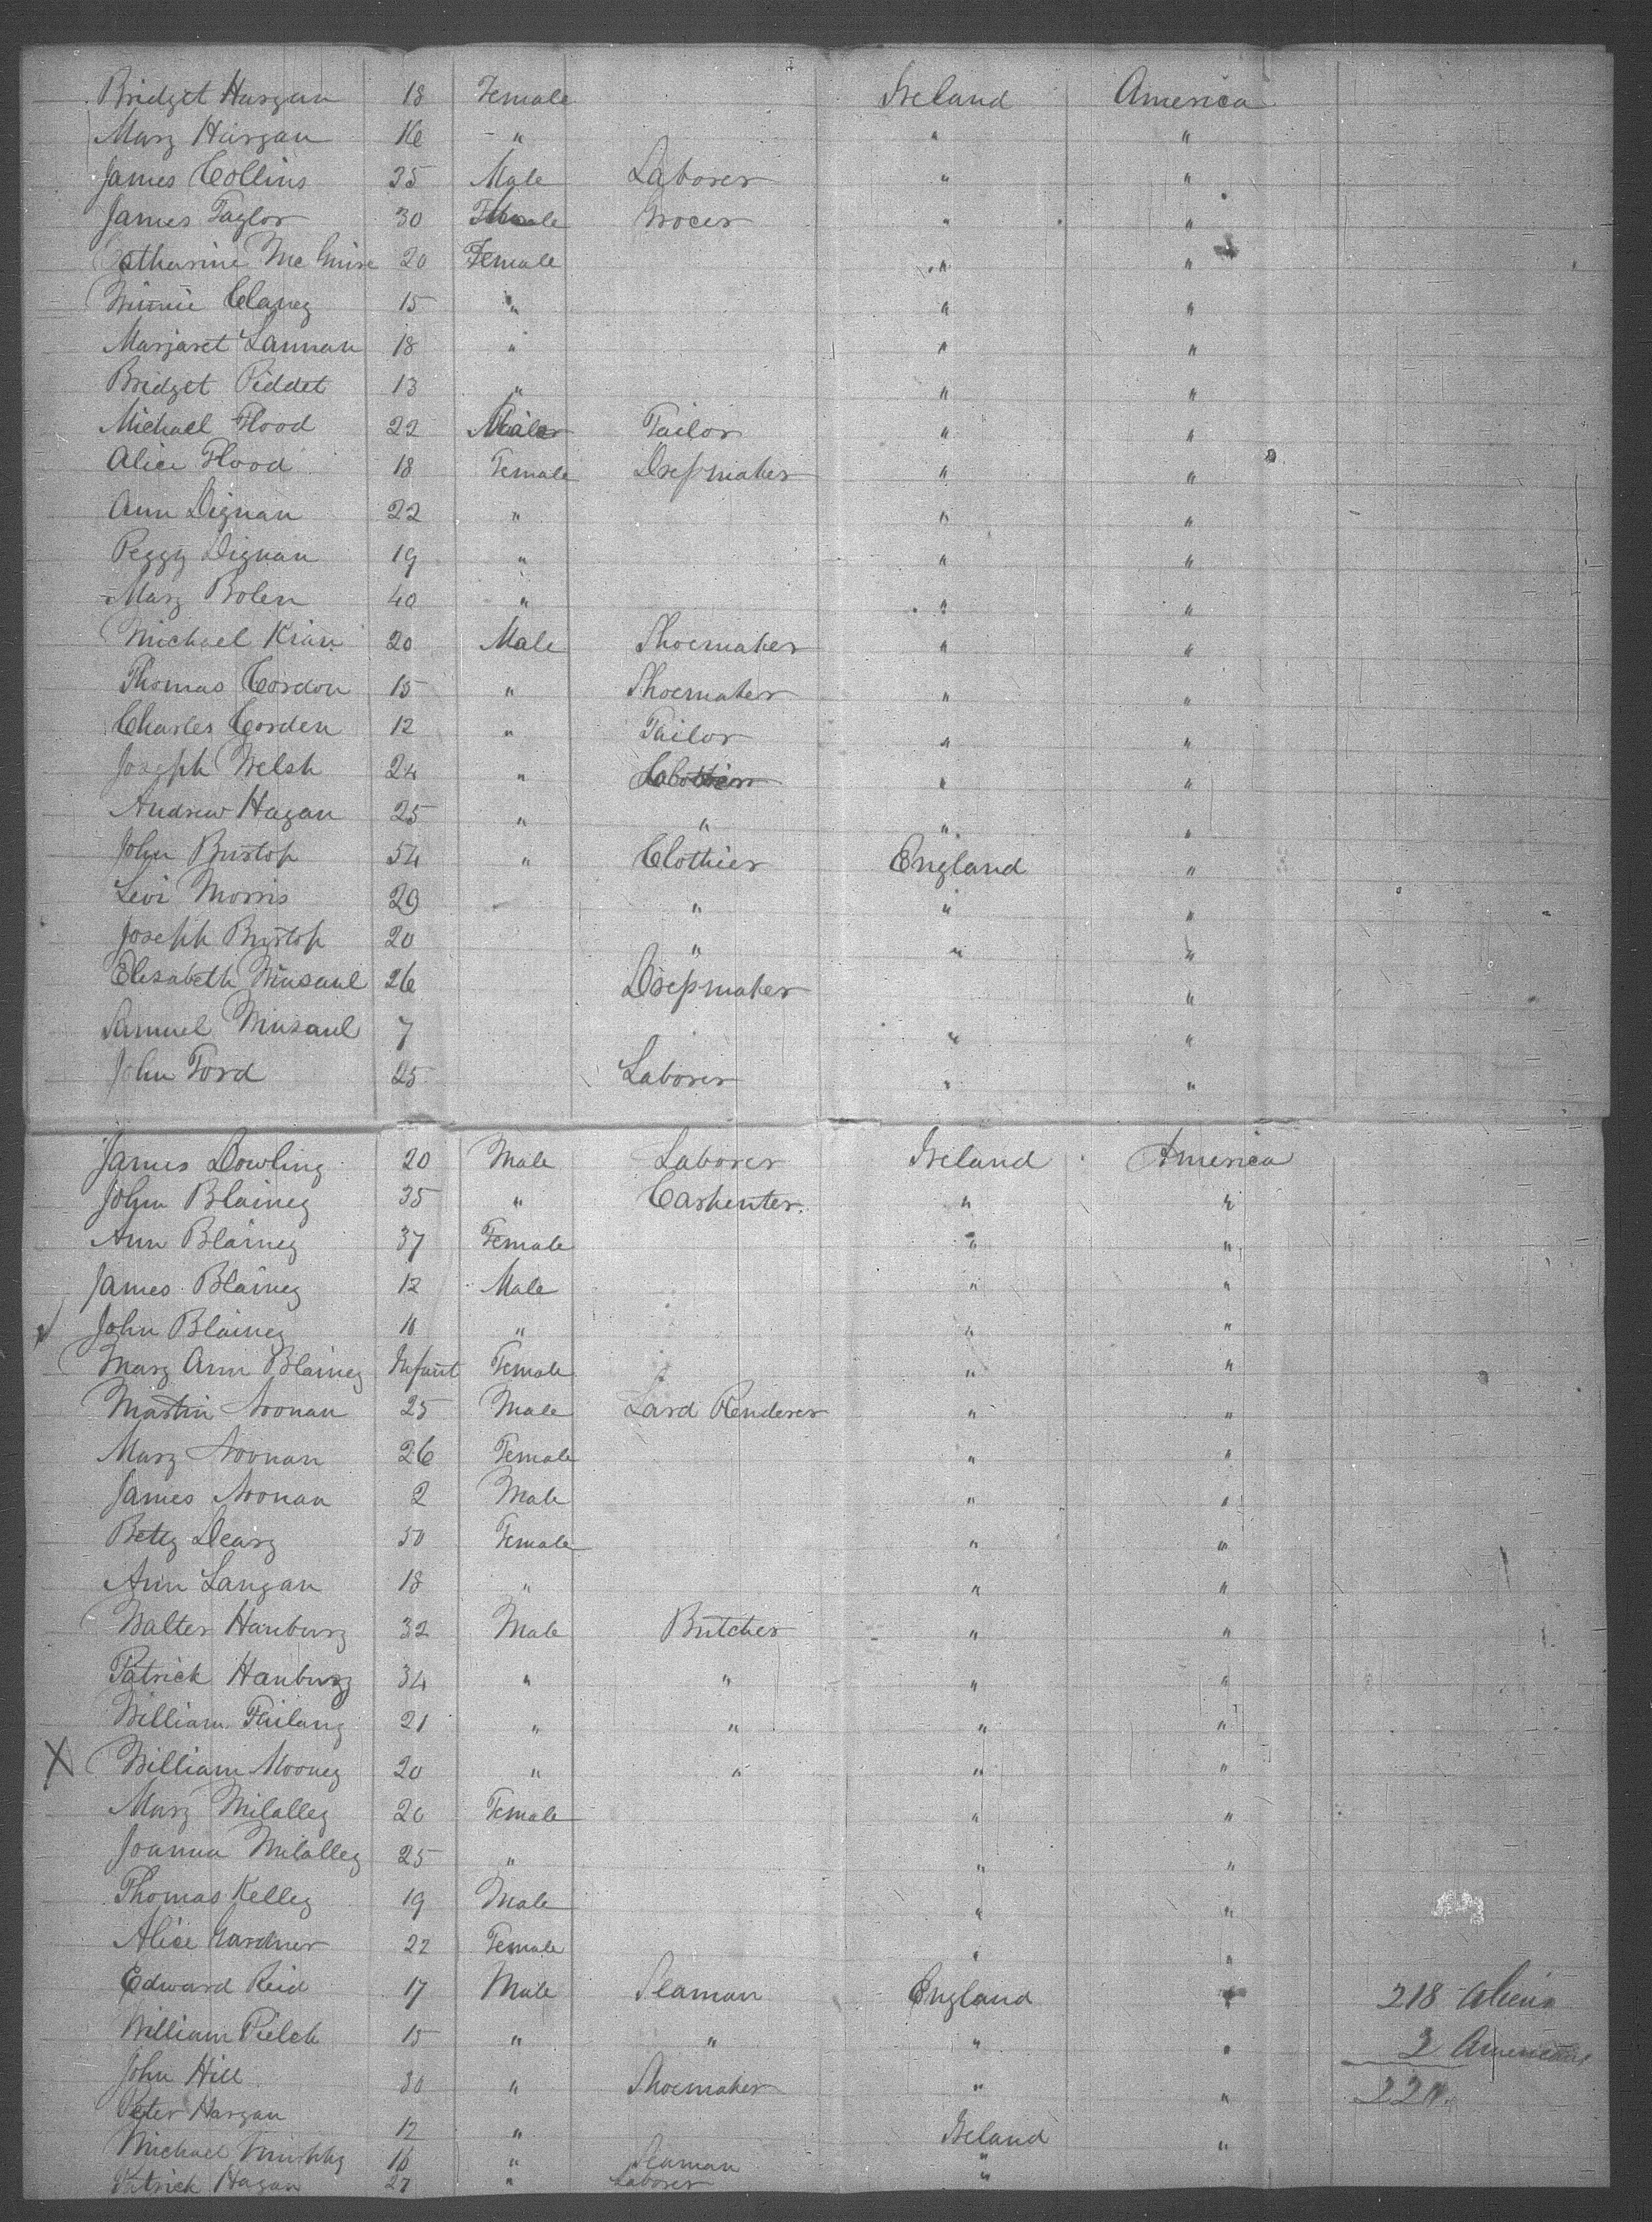 Bridget Hargan 18 Female Ireland America
Mary Hargan 16 " " "
James Collins 35 Male Laborer " "
James Taylor 30 Male Grocer " "
Catharine Mc Guire 20 Female " "
Winnie Clancy 15 " " "
Margaret Lannan 18 " " "
Bridget Piddet 13 " " "
Michael Flood 22 Male Tailor " "
Alice Flood 18 Female Dressmaker " "
Ann Dignan 22 " " "
Peggy Dignan 19 " " "
Mary Bolen 40 " " "
Michael Kian 20 Male Shoemaker " "
Thomas Cordon 15 " Shoemaker " "
Charles Corden 12 " Tailor " "
Joseph Welsh 24 " " "
Andrew Hagan 25 " " " "
John Bustop 54 " Clothier England "
Levi Morris 29 " " "
Joseph Bustop 20 " " "
Elesabeth Musaul 26 Dressmaker "
Samuel Musaul 7 " "
John Ford 25 Laborer " "
James Dowling 20 Male Laborer Ireland America
John Blainey 35 " Carpenter " "
Ann Blainey 37 Female " "
James Blainey 12 Male " "
John Blainey 10 " " "
Mary Ann Blainey Infant Female " "
Martin Noonan 25 Male Lard Renderer " "
Mary Noonan 26 Female " "
James Noonan 2 Male " "
Betty Deary 50 Female " "
Ann Langan 18 " " "
Walter Hanbury 32 Male Butcher " "
Patrick Hanbury 34 " " " "
William 21 " " " "
X William Mooney 20 " " " "
Mary Milalley 20 Female " "
Joanna Milalley 25 " " "
Thomas Kelley 19 Male " "
Alice Gardner 22 Female " "
Edward Reid 17 Male Seaman England " 218 Aliens
William Pielck 15 " " " " 2 Americans
John Hill 30 " Shoemaker " " 220
Peter Hargan 12 " Ireland "
Michael 16 " Seaman "
Patrick Hagan 27 " Laborer "